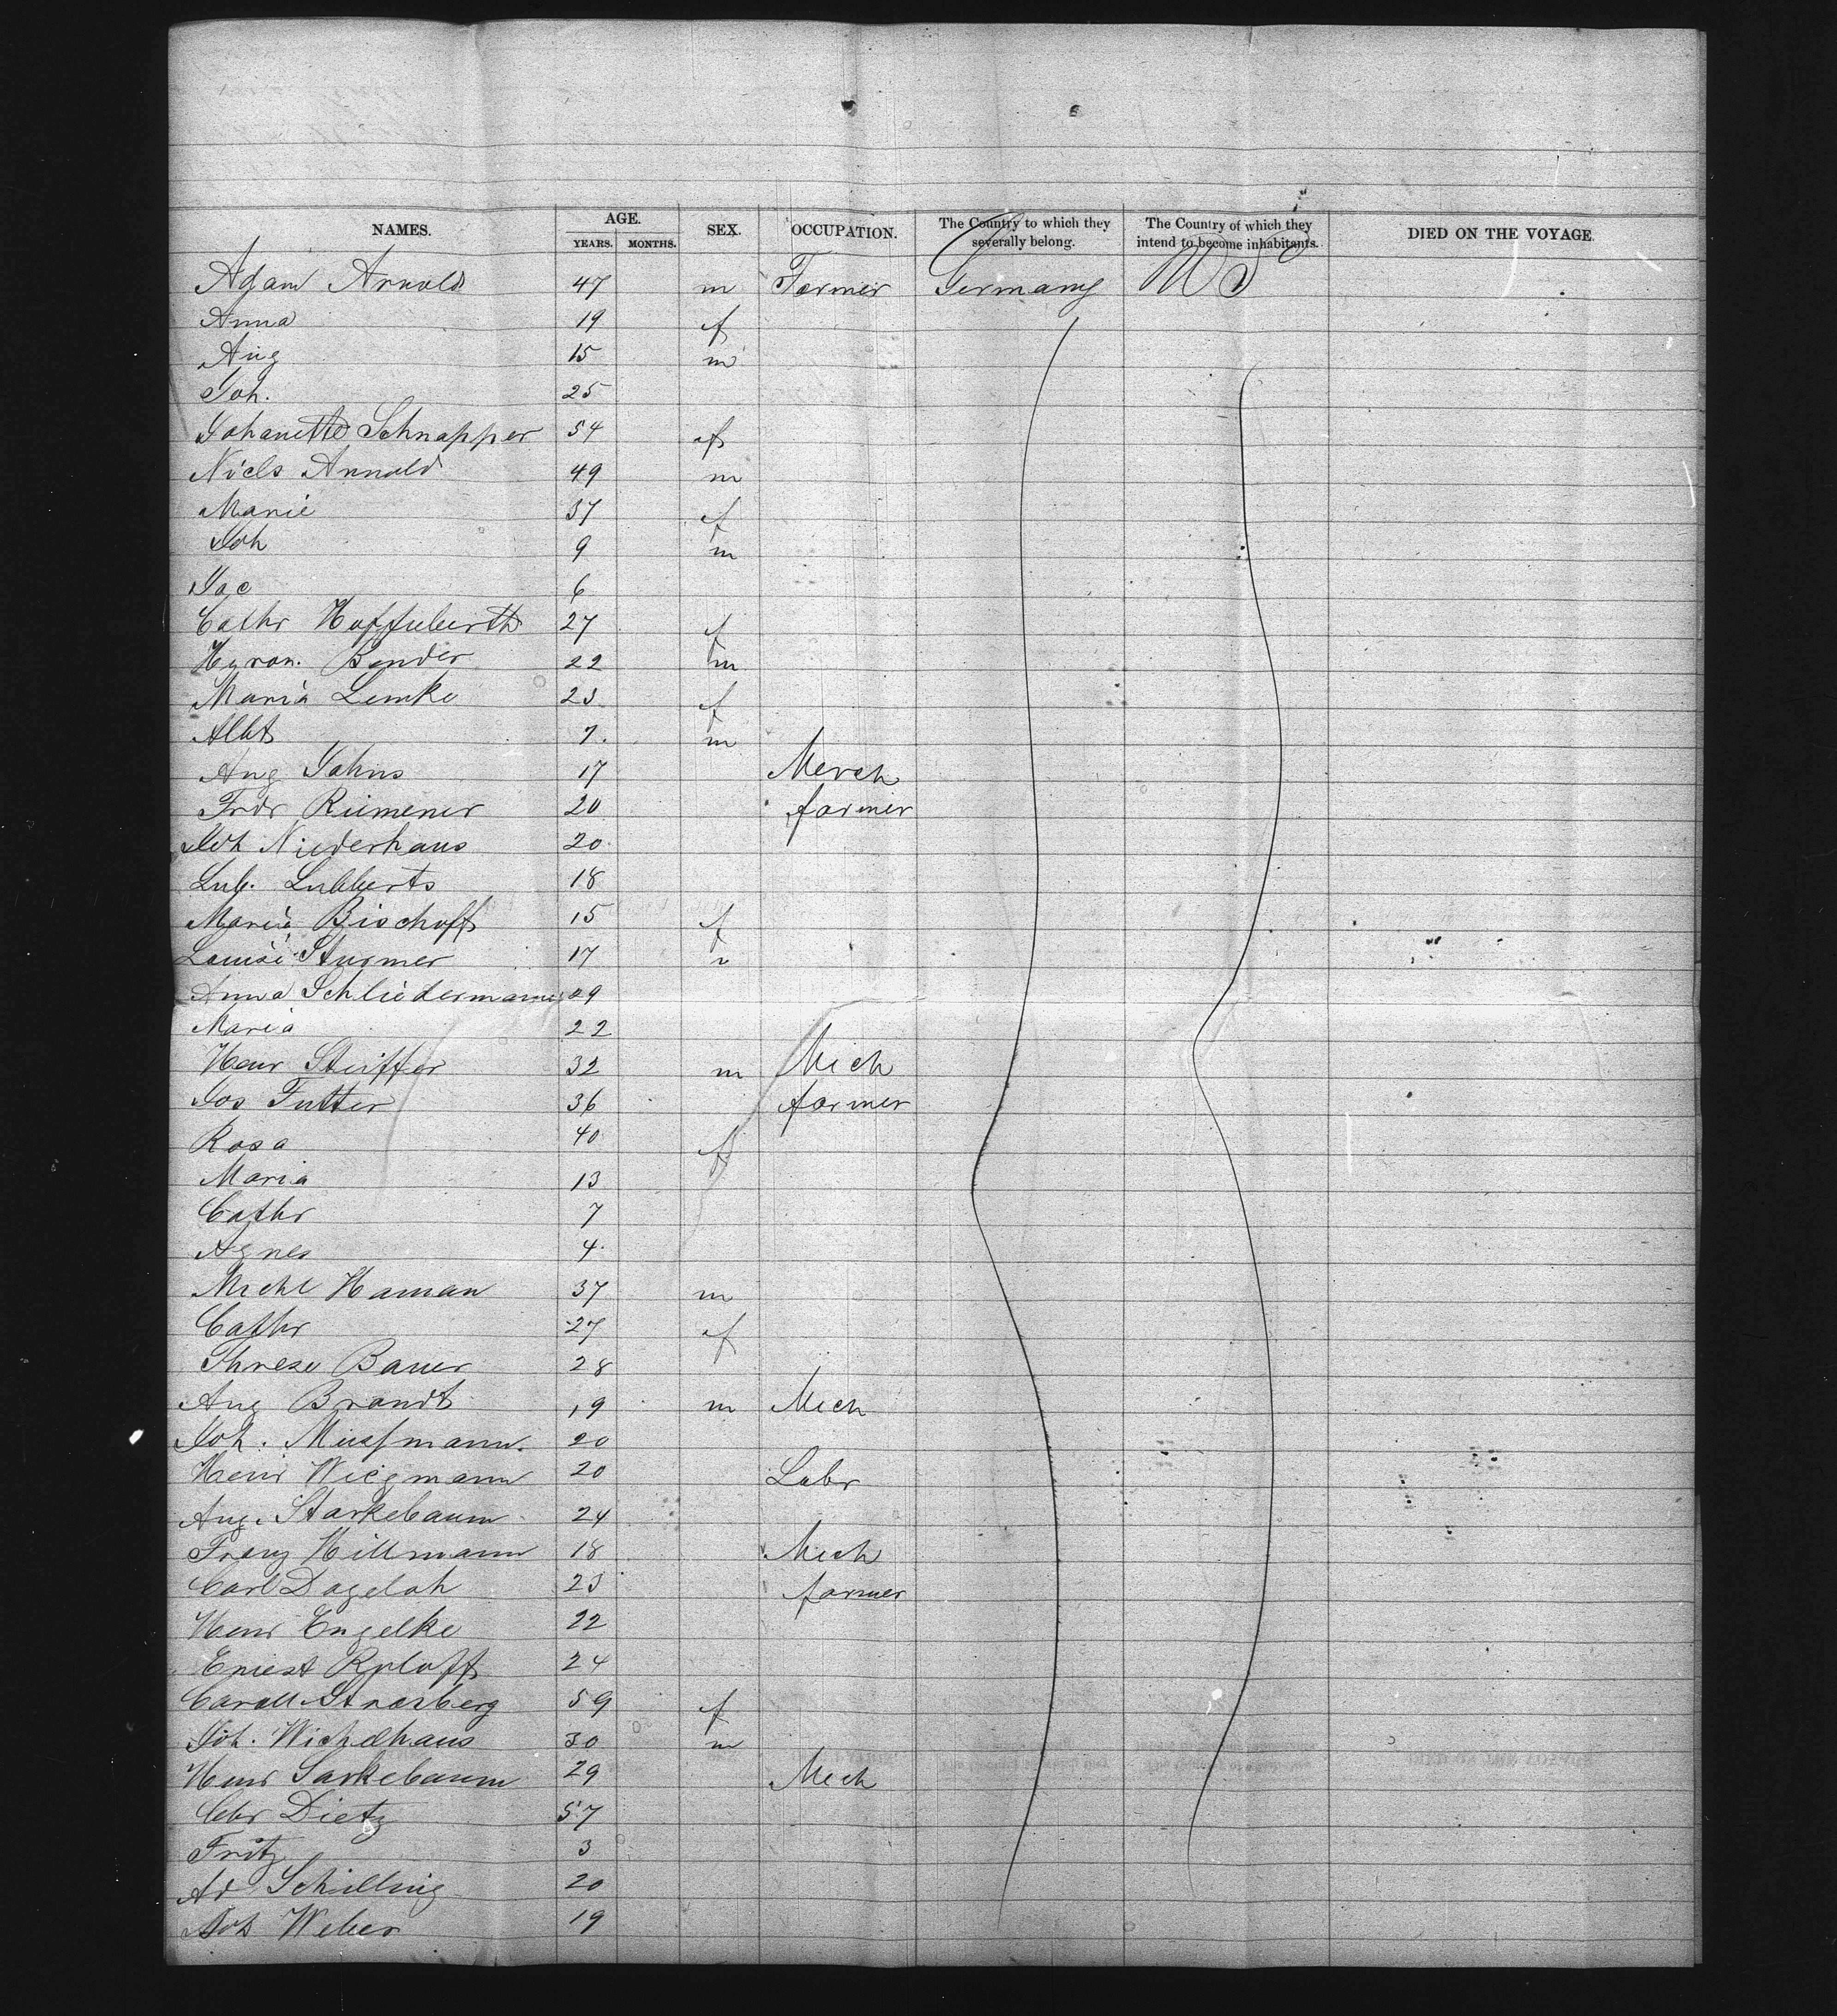 NAMES. AGE. SEX. OCCUPATION. The Country to which they severally belong. The Country of which they intend to become inhabitants. DIED ON THE VOYAGE.
YEARS. MONTHS.
Adam Arnold 47 m Farmer Germany U S
Anna 19 f
Aug 15 m
Joh. 25
Johanette Schnapper 54 f
Niels Arnold 49 m
Marie 37 f
Joh 9 m
Jac 6
Cathr 27 f
Hyron. Bender 22 m
Maria Lemke 23 f
Albt 7 m
Aug Johns 17 Merch
Frdr Riemener 20 farmer
Joh Niederhaus 20
Lub. Lubberts 18
Maria Bischoff 15 f
Louise Sturmer 17
Anna Schliedermann 29
Maria 22
Henr Steiffer 32 m Mech
Jos Futter 36 farmer
Rosa 40 f
Maria 13
Cathr 7
Agnes 4
Michl Haman 37 m
Cathr 27 f
Threse Bauer 28
Aug Brandt 19 m Mech
Joh. Musfmann. 20
Henr Wiegmann 20 Labr
Aug. Starkebaum 24
Franz Hillmann 18 Mech
Carl Dageloh 23 farmer
Henr Engelke 22
Ernest Ruloff 24
Strasberg 59 f
Joh. Wichelhaus 30 m
Henr Sarkebaum 29 Mech
Chr Dietz 57
Fritz 3
Ad Schilling 20
Weber 19